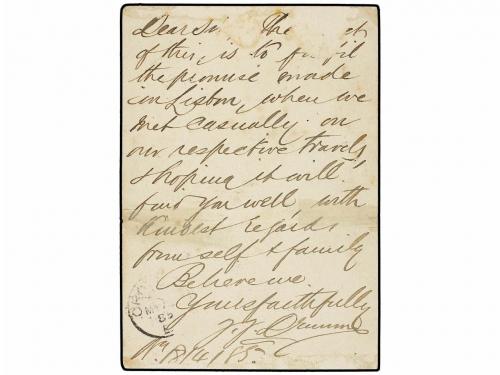 Dear Sir The
of this, is to
the promise made
in Lisbon, when we
met casually on
our respective travels,
& hoping it will
find you well with
kindest regards
from self & family
Believe me
Yours faithfully
18/4/85